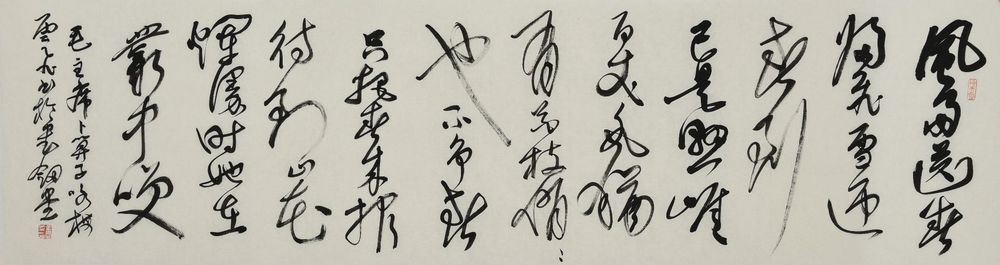 風雨送春
歸飛雪迎
春到
已是懸崖
百丈冰猶
有花枝俏ミ
也不争春
只把春来报
待到山花
爛漫时她在
叢中笑
毛主席卜算子咏梅
雲飞书於剑堂